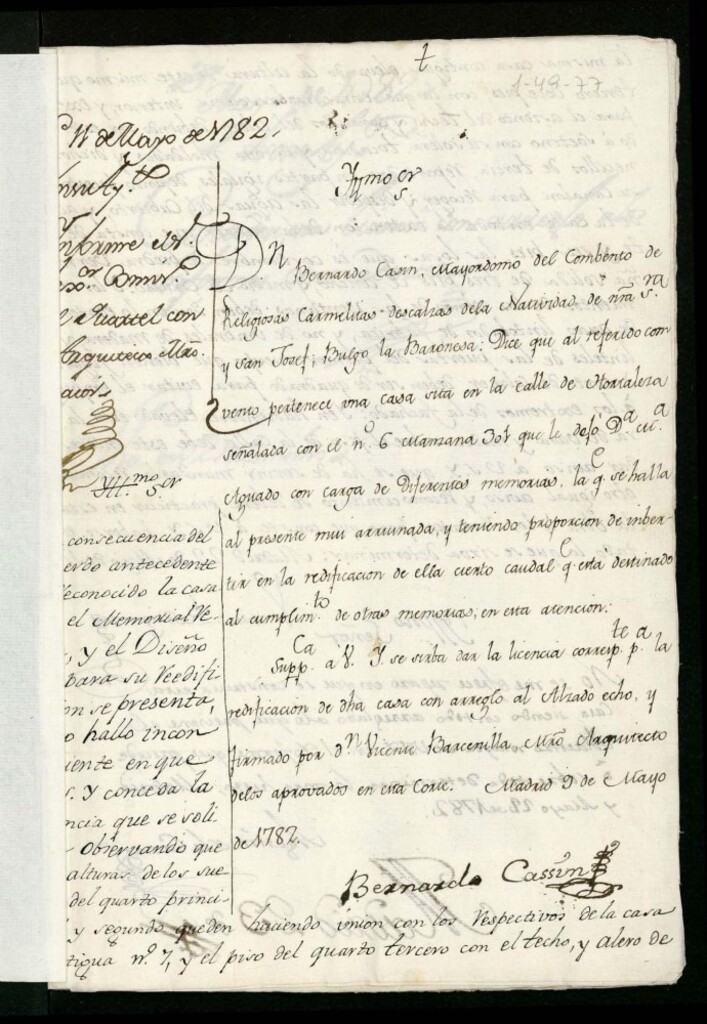 t
1-49-77
11 de Mayo de 1782.
Informe el Sr.
Quartel con
Arquitecto Mro.
Yll.mo S.or
consecuencia del
erdo antecedente
reconocido la casa
el Memorial re-
, y el Diseño
para su reedifi
on se presenta,
o hallo incon
iente en que
S. Y conceda la
ncia que se soli
Observando que
alturas de los sue
del quarto princi-
y segundo queden haciendo union con los respectivos de la casa
tigua n.º 7, y el piso del quarto tercero con el techo, y alero de
Yllmo Sr
Dn Bernardo Casin, Mayordomo del Combento de
Religiosas Carmelitas descalzas dela Natividad de nra Sra
y San Josef; Bulgo la Baronesa: Dice que al referido com
vento pertenece una casa sita en la calle de Hortaleza
señalada con el nº 6 Manzana 301 que le dejó Da Ma
Aguado con carga de Diferentes memorias, la q.e se halla
al presente mui arruinada, y teniendo proporcion de inber-
tir en la redificacion de ella cierto caudal q.e está destinado
al cumplim.to de otras memorias; en esta atencion:
Supp.ca á V. Y. se sirba dar la licencia corresp.te p.a la
redificacion de dha casa con arreglo al Alzado echo, y
firmado por dn Vicente Barcenilla, Mro Arquitecto
delos aprovados en esta Corte. Madrid 9 de Mayo
de 1782.
Bernardo Cassin